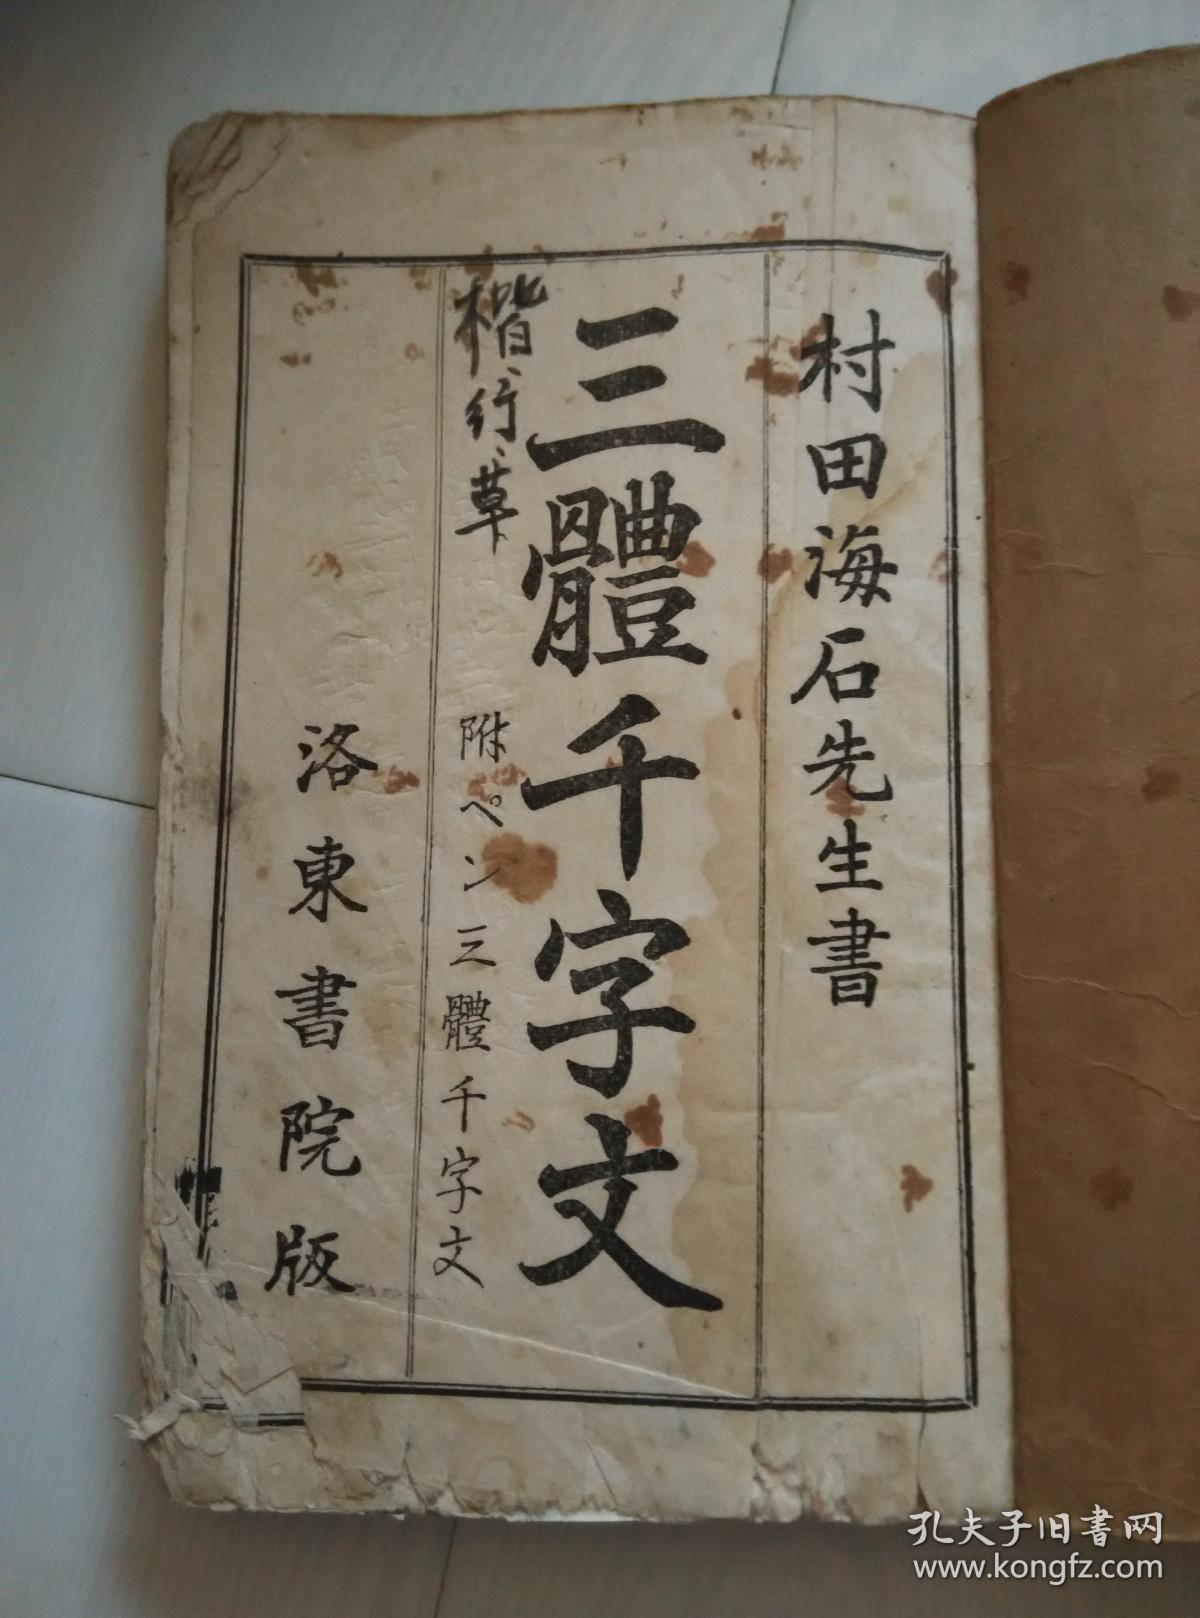 村田海石先生書
三體千字文
楷、行、草
附ペン三體千字文
洛東書院版
孔夫子旧书网
www.kongfz.com